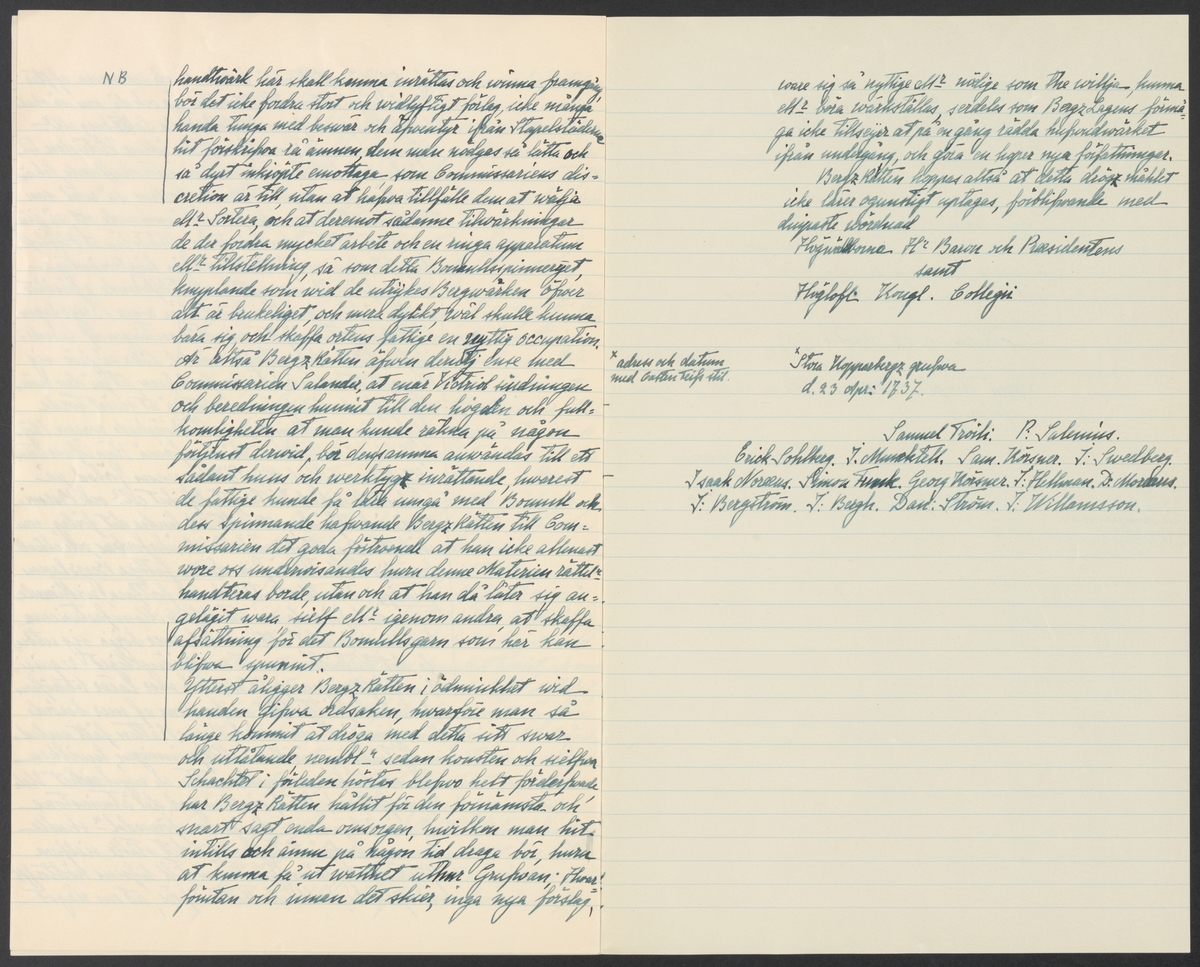 NB
handtwärk här skall komma inrättas och winna framgång,
bör det icke fordra stort och widlyftigt förlag, icke många-
handa tunga med beswär och äfwentyr ifrån Stapelstäderna
hit förskrifwa rå ämnen, dem man nödgas så lätta och
så dyrt inköpte emottaga som Commissariens dis-
cretion är till utan at hafwa tillfälle dem at wälja
ell:r Sortera, och at deremot sådanne tilwärkningar
de der fordra mycket arbete och en ringa apparatum
ell:r tillstellning, så som detta Bomullsspinneriet,
knyplande som wid de utrikes Bergwärken öfwer
alt är brukeliget, och mera dylikt, wäl skulle kunna
bära sig och skaffa ortens fattige en nyttig occupation.
Är altså Bergz Rätten äfwen derutj ense med
Commissarien Salander, at enär Victriol siudningen
och beredningen hunnit till den högden och full-
komligheten at man kunde räkna på någon
förtjenst derwid, bör densamma användas till ett
sådant huus och werktygz inrättande, hwarest
de fattige kunde få lära umgå med Bomull och
dess spinnande hafwande Bergz Rätten till Com-
missarien det goda förtroende at han icke allenast
wore oss underwisandes huru denne Materien rätteli:n
handteras borde, utan och at han då låter sig an-
gelägit wara, sielf ell:r igenom andra, at skaffa
afsättning för det Bomullsgarn som här kan
blifwa spunnit.
Ytterst åligger Bergz Rätten i ödmiukhet wid
handen gifwa ordsaken, hwarföre man så
länge kommit at dröga med detta sitt swar
och utlåtande nembl:n sedan konsten och sielfwa
Schachtet i förleden höstas blefwo helt förderfwade
har Bergz Rätten hållit för den förnämsta och
snart sagt enda omsorgen, hwilken man hit
intills och ännu på någon tid draga bör, huru
at kunna få ut wattnet uthur Grufwan; Hwar-
förutan och innan det skier, inga nya förslag,
ware sig så nyttige ell:r nödige som the willja, kunna
ell:r böra wärkställas, serdeles som BergzLagens förmå-
ga icke tillseyer at på en gång rädda hufwudwärket
ifrån undergång, och göra en hoper nya författningar.
Bergz Rätten hoppas altså at detta drögzmåhlet
icke lärer ogunstigt uptagas, förblifwande med
diupaste wördnad
Högwälborne H:r Baron och Præsidentens
samt
Höglofl: Kongl. Collegii
x adress och datum
med Costen Kiss stil.
x Stora Kopparbergz grufwa
d. 23 Apr: 1737.
Samuel Troili. P. Salenius.
Erick Sohlberg. J. Munktell. Sam. Körsner. J: Swedberg.
Isaak Noræus. Simon Funk. Georg Körsner. J: Hellman. D: Mordæus.
J: Bergström. J: Bergh. Dan: Ström. J. Willamsson.